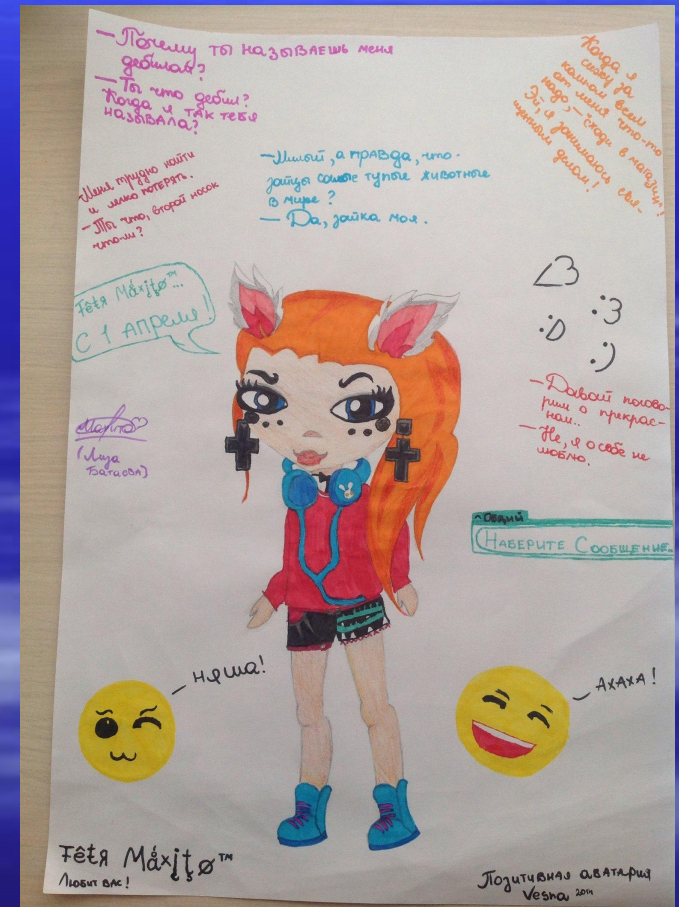 —Почему ты называешь меня
дебилом?
— Ты что дебил?
Когда я так тебя
называла?
Когда я
сижу за
компом всем
от меня что-то
надо, — "сходи в магазин"!
Эй, я занимаюсь ува-
щимся делом!
Меня трудно найти
и легко потерять.
— Ты что, второй носок
что-ли?
—Милый, а правда, что
зайцы самые тупые животные
в мире?
— Да, зайка моя.
Fêtя Máxįţø™...
С 1 Апреля!
<3
:3
:D
:)
—Давай погово-
рим о прекрас-
ном..
—Не, я о себе не
люблю.
(Лиза
Батаева)
^Общий
Наберите Сообщение.
— Няша!
— Ахаха!
Fêtя Máxįţø™
Любит вас!
Позитивная аватария
Vesna 2014